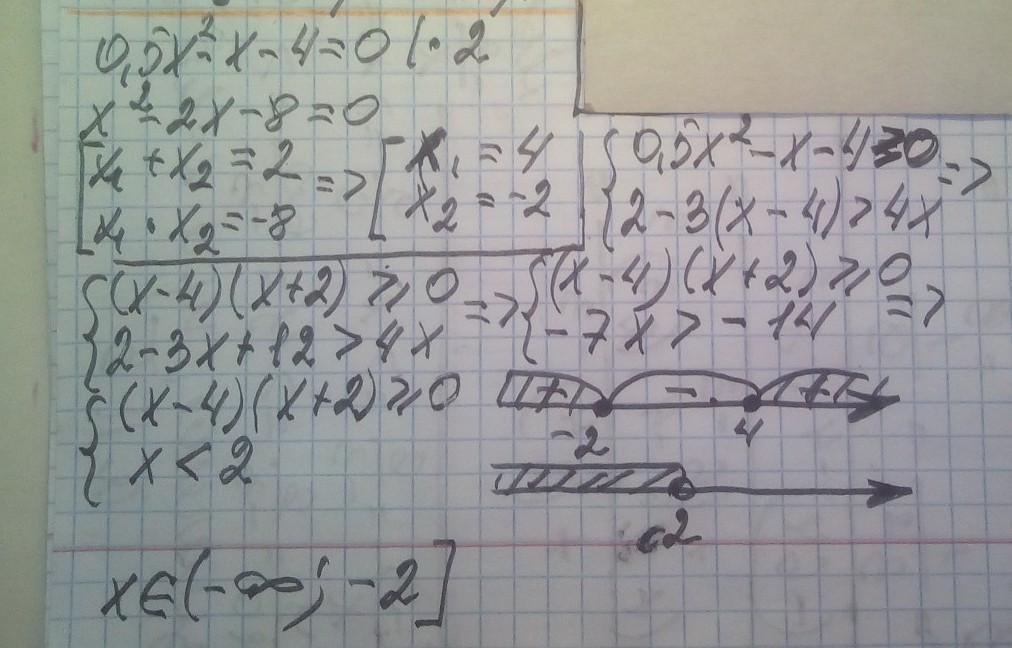 0,5x²-x-4=0 |·2
x²-2x-8=0
[x₁+x₂=2 => [x₁=4
x₁·x₂=-8 x₂=-2
{0,5x²-x-4≥0 =>
2-3(x-4)>4x
{(x-4)(x+2)≥0 =>
2-3x+12>4x
{(x-4)(x+2)≥0 =>
-7x>-14
{(x-4)(x+2)≥0
x<2
+ - +
-2 4
2
x∈(-∞; -2]